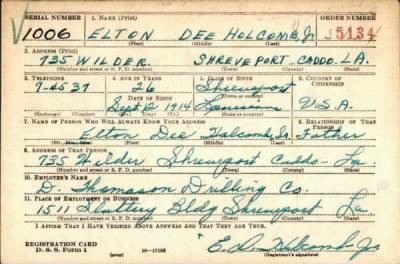 SERIAL NUMBER 1. NAME (Print) ORDER NUMBER
1006 ELTON DEE HOLCOMB, Jr S5134
(First) (Middle) (Last)
2. ADDRESS (Print)
735 WILDER. SHREVEPORT-CADDO-LA.
(Number and street or R. F. D. number) (Town) (County) (State)
3. TELEPHONE 4. AGE IN YEARS 5. PLACE OF BIRTH 6. COUNTRY OF CITIZENSHIP
7-4537 26 Shreveport
DATE OF BIRTH (Town or county)
Sept 2 1914 Louisiana U.S.A.
(Exchange) (Number) (Mo.) (Day) (Yr.) (State or country)
7. NAME OF PERSON WHO WILL ALWAYS KNOW YOUR ADDRESS 8. RELATIONSHIP OF THAT PERSON
Elton Dee Holcomb, Sr. Father
(Mr., Mrs., Miss) (First) (Middle) (Last)
9. ADDRESS OF THAT PERSON
735 Wilder Shreveport Caddo - La
(Number and street or R. F. D. number) (Town) (County) (State)
10. EMPLOYER'S NAME
D. Thomason Drilling Co.
11. PLACE OF EMPLOYMENT OR BUSINESS
1511 Slattery Bldg Shreveport La
(Number and street or R. F. D. number) (Town) (County) (State)
I AFFIRM THAT I HAVE VERIFIED ABOVE ANSWERS AND THAT THEY ARE TRUE.
REGISTRATION CARD
D. S. S. Form 1 (over) 16-17105 E. D. Holcomb Jr.
(Registrant's signature)